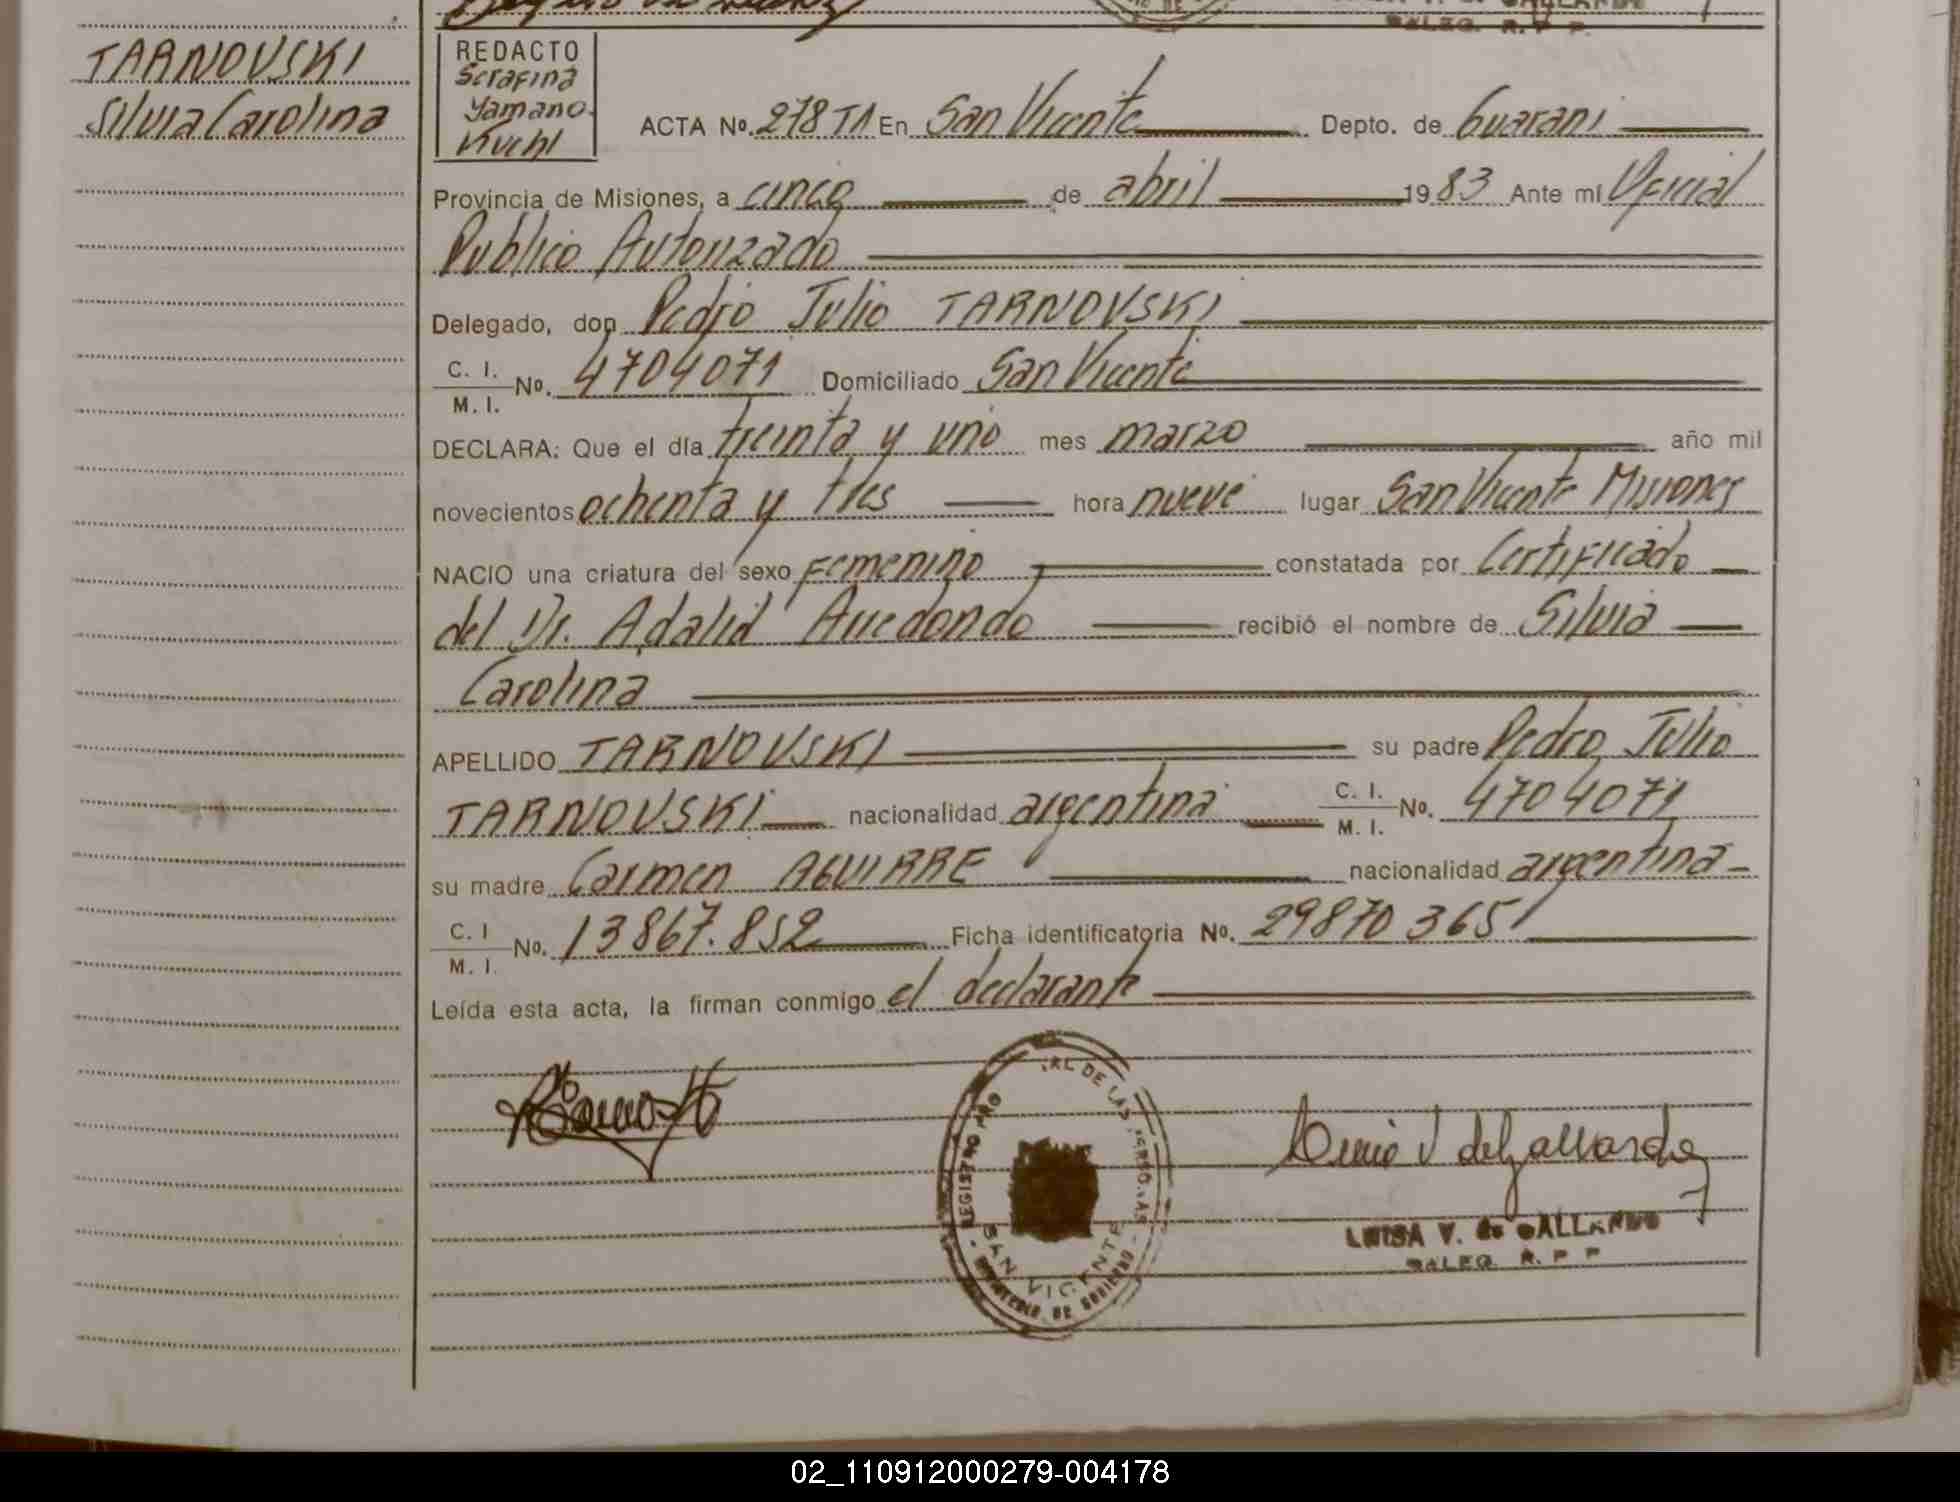 TARNOVSKI
Silvia Carolina
REDACTO
Serafina
Yamano
Kuchl
ACTA No. 278 T1 En San Vicente Depto. de Guarani
Provincia de Misiones, a cinco de abril 1983 Ante mí Oficial
Publico Autorizado
Delegado, don Pedro Julio TARNOVSKI
C. I.
M. I. No. 4704071 Domiciliado San Vicente
DECLARA: Que el día treinta y uno mes marzo año mil
novecientos ochenta y tres hora nueve lugar San Vicente Misiones
NACIO una criatura del sexo Femenino constatada por Certificado
del Dr. Adalid Arredondo recibió el nombre de Silvia
Carolina
APELLIDO TARNOVSKI su padre Pedro Julio
TARNOVSKI nacionalidad argentina C. I.
M. I. No. 4704071
su madre Carmen AGUIRRE nacionalidad argentina
C. I
M. I. No. 13867.852 Ficha identificatoria No. 29870365
Leída esta acta, la firman conmigo el declarante
SAN VICENTE
LUISA V. de GALLARDO
DALEG. R. P P
02_110912000279-004178